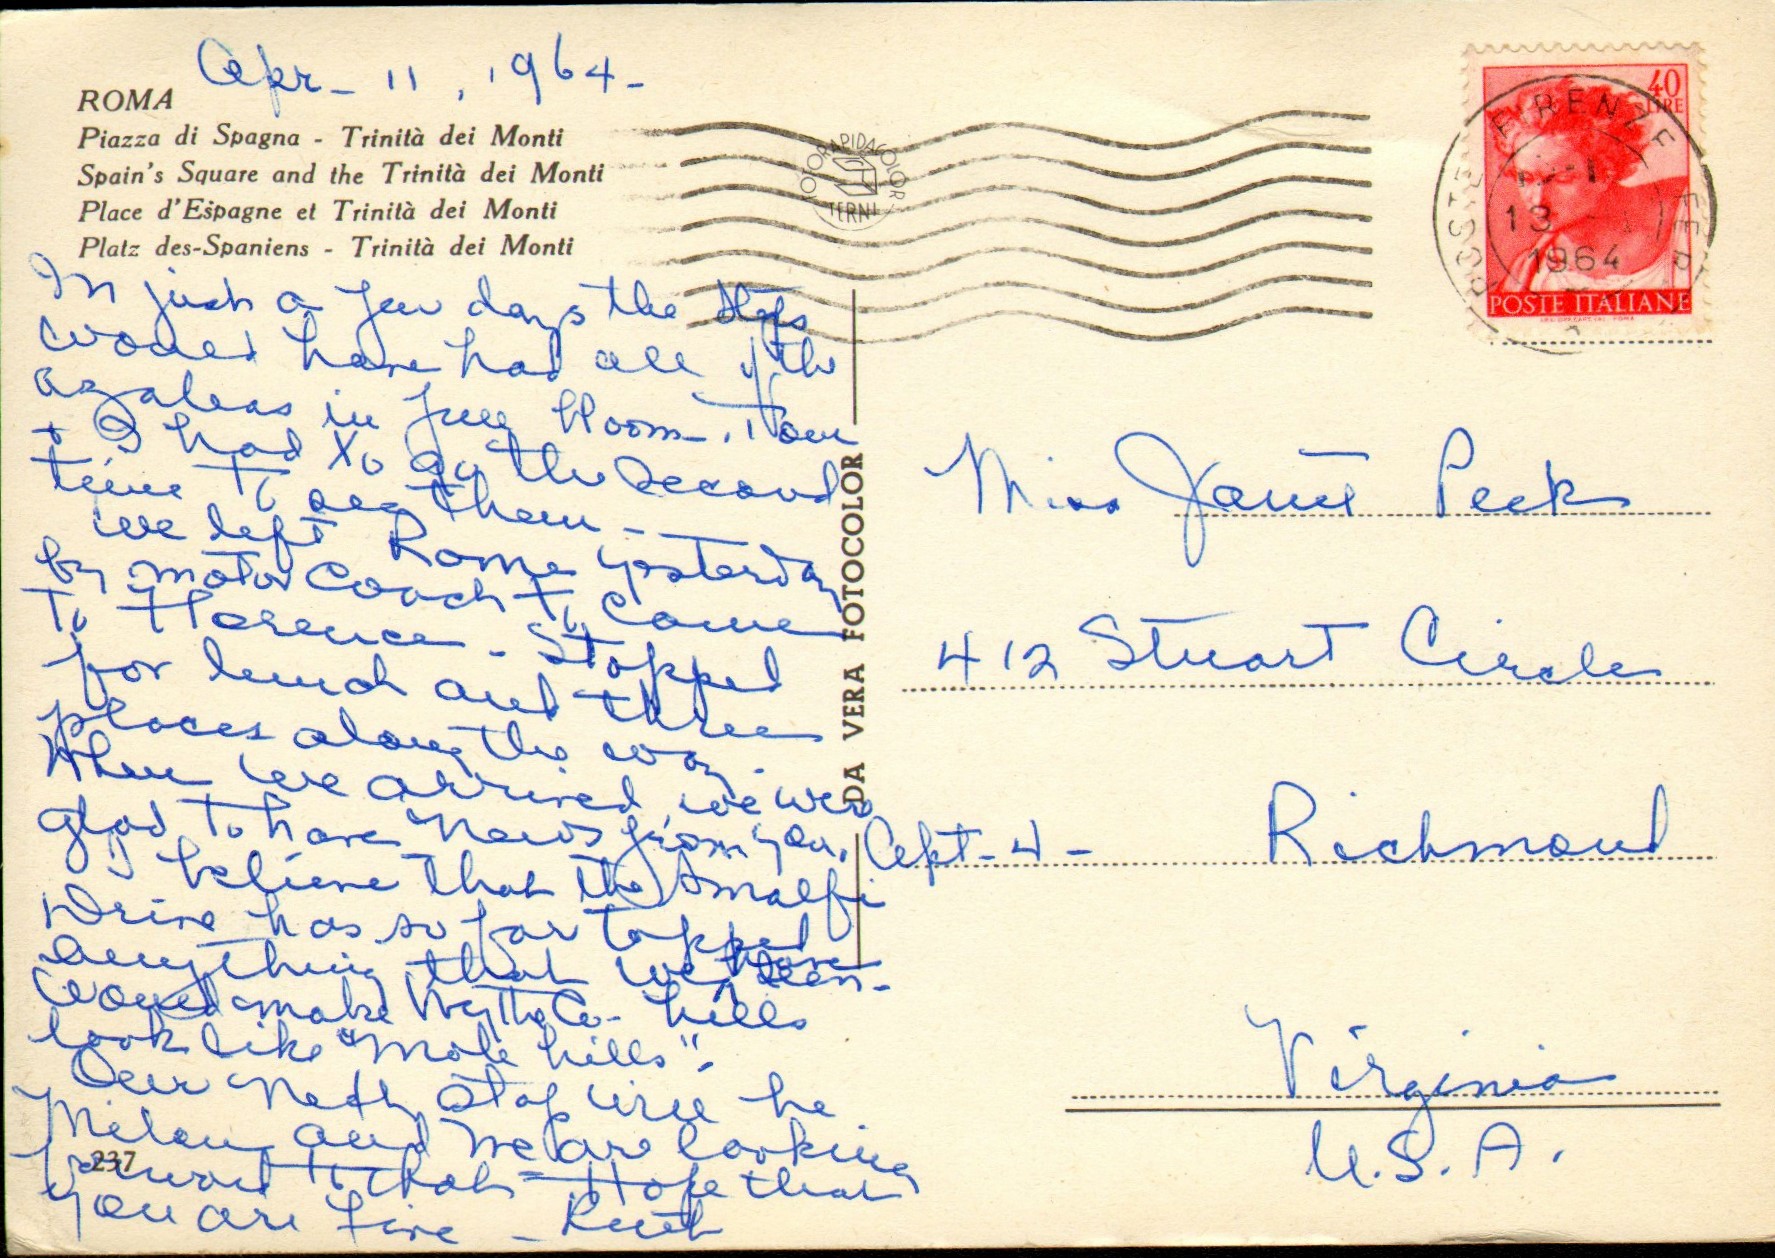 Apr - 11, 1964 -
ROMA
Piazza di Spagna - Trinità dei Monti
Spain's Square and the Trinità dei Monti
Place d'Espagne et Trinità dei Monti
Platz des-Spaniens - Trinità dei Monti
In just a few days the steps
would have had all of the
azaleas in full bloom. Tom
+ I had to go the second
time to see them -
We left Rome yesterday
by motor coach to come
to Florence - Stopped
for lunch and three
places along the way.
When we arrived, we were
glad to have news from you.
I believe that the Amalfi
Drive has so far topped
anything that we have seen -
Would make Wythe Co. hills
look like "mole hills".
Our next stop will be
Milan and we are looking
forward to that - Hope that
you are fine - Ruth
237
DA VERA FOTOCOLOR
FOTORAPIDACOLOR
TERNI
40
LIRE
POSTE ITALIANE
POSTE FIRENZE FERR
13
1964
Miss Janet Peck
412 Stuart Circle
Apt - 4 - Richmond
Virginia
U.S.A.